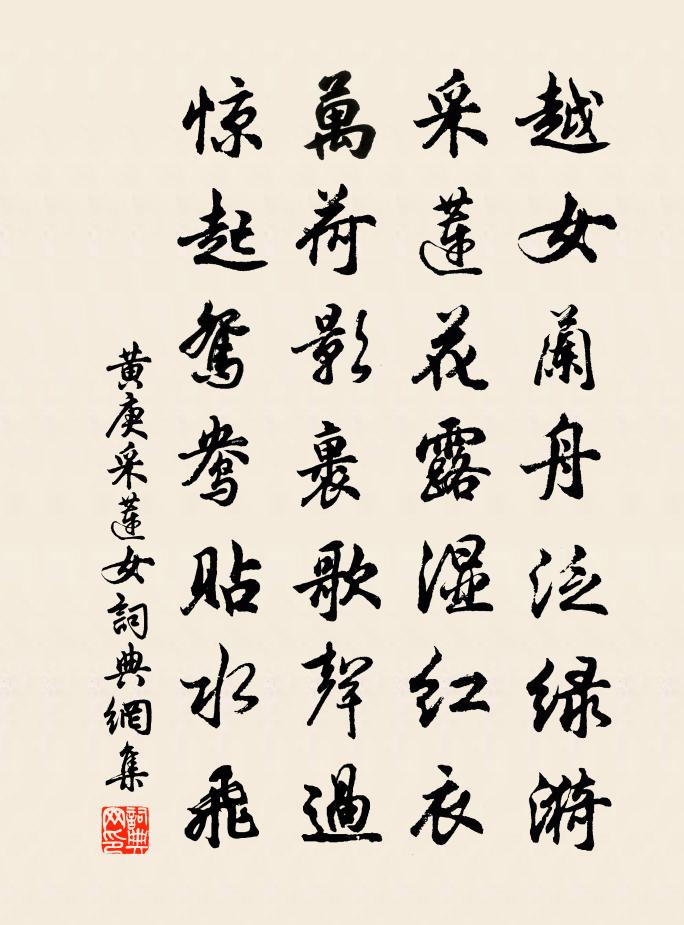 越女蘭舟泛绿漪
采蓮花露濕红衣
萬荷影裏歌聲過
惊起鴛鴦貼水飛
黄庚采蓮女詞典網集
詞典网印